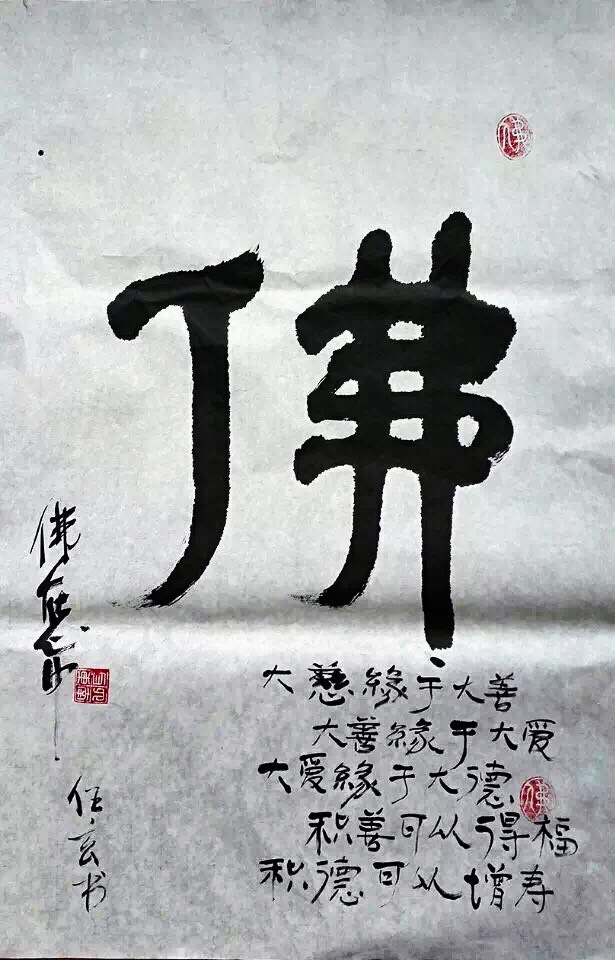 佛
佛在心中
大慈緣于大善
大善緣于大爱
大爱緣于大德
积善可以得福
积德可以增寿
任玄书
佛
佛